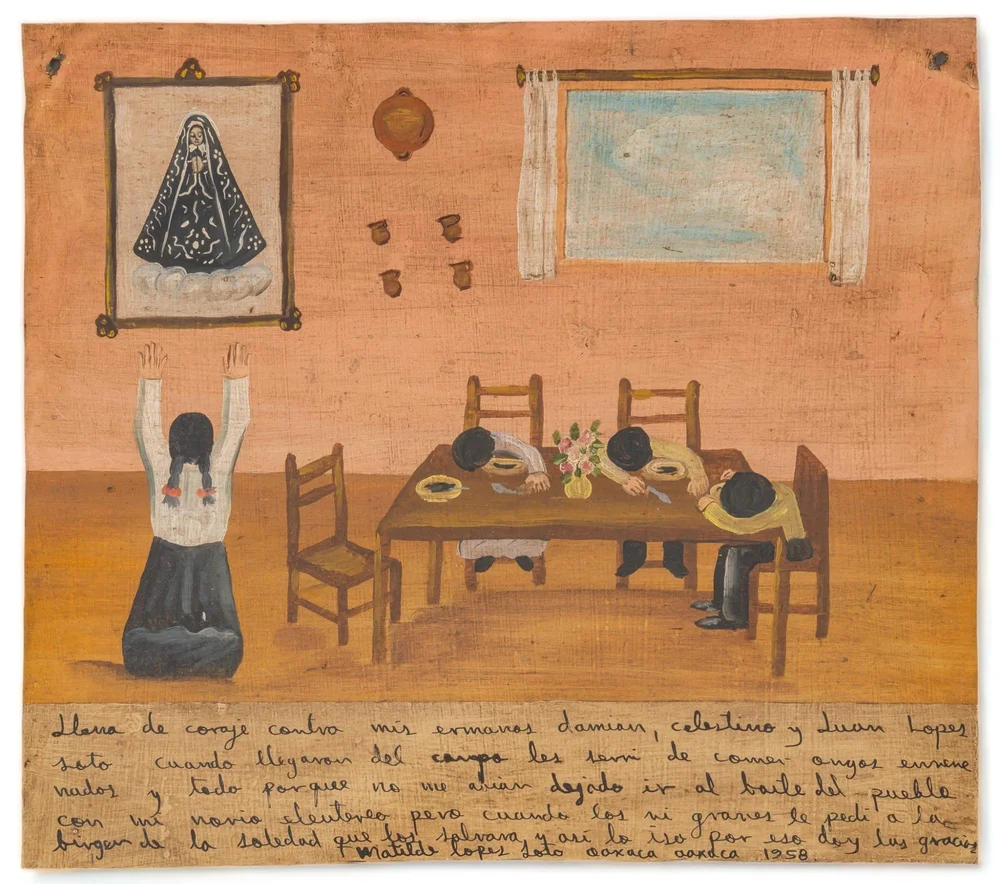 Llena de coraje contra mis ermanos damian, celestino y Juan Lopes
soto cuando llegaron del campo les servi de comer ongos envene
nados y todo porquee no me abian dejado ir al baile del pueblo
con mi novio eleutereo pero cuando los vi graves le pedi a la
birgen de la soledad que los salvara y asi lo iso por eso doy las gracias
Matilde Lopes Soto oaxaca oaxaca 1958.